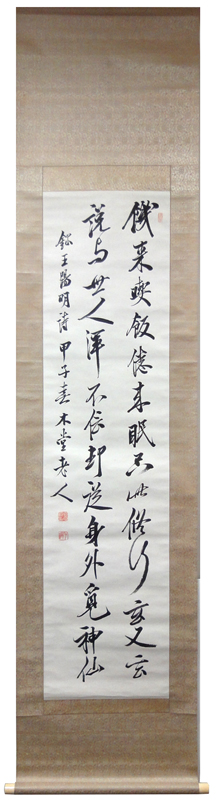 饑来喫飯倦来眠只此修行玄又玄
説与世人渾不信却従身外覓神仙
録王陽明詩 甲子春 木堂老人